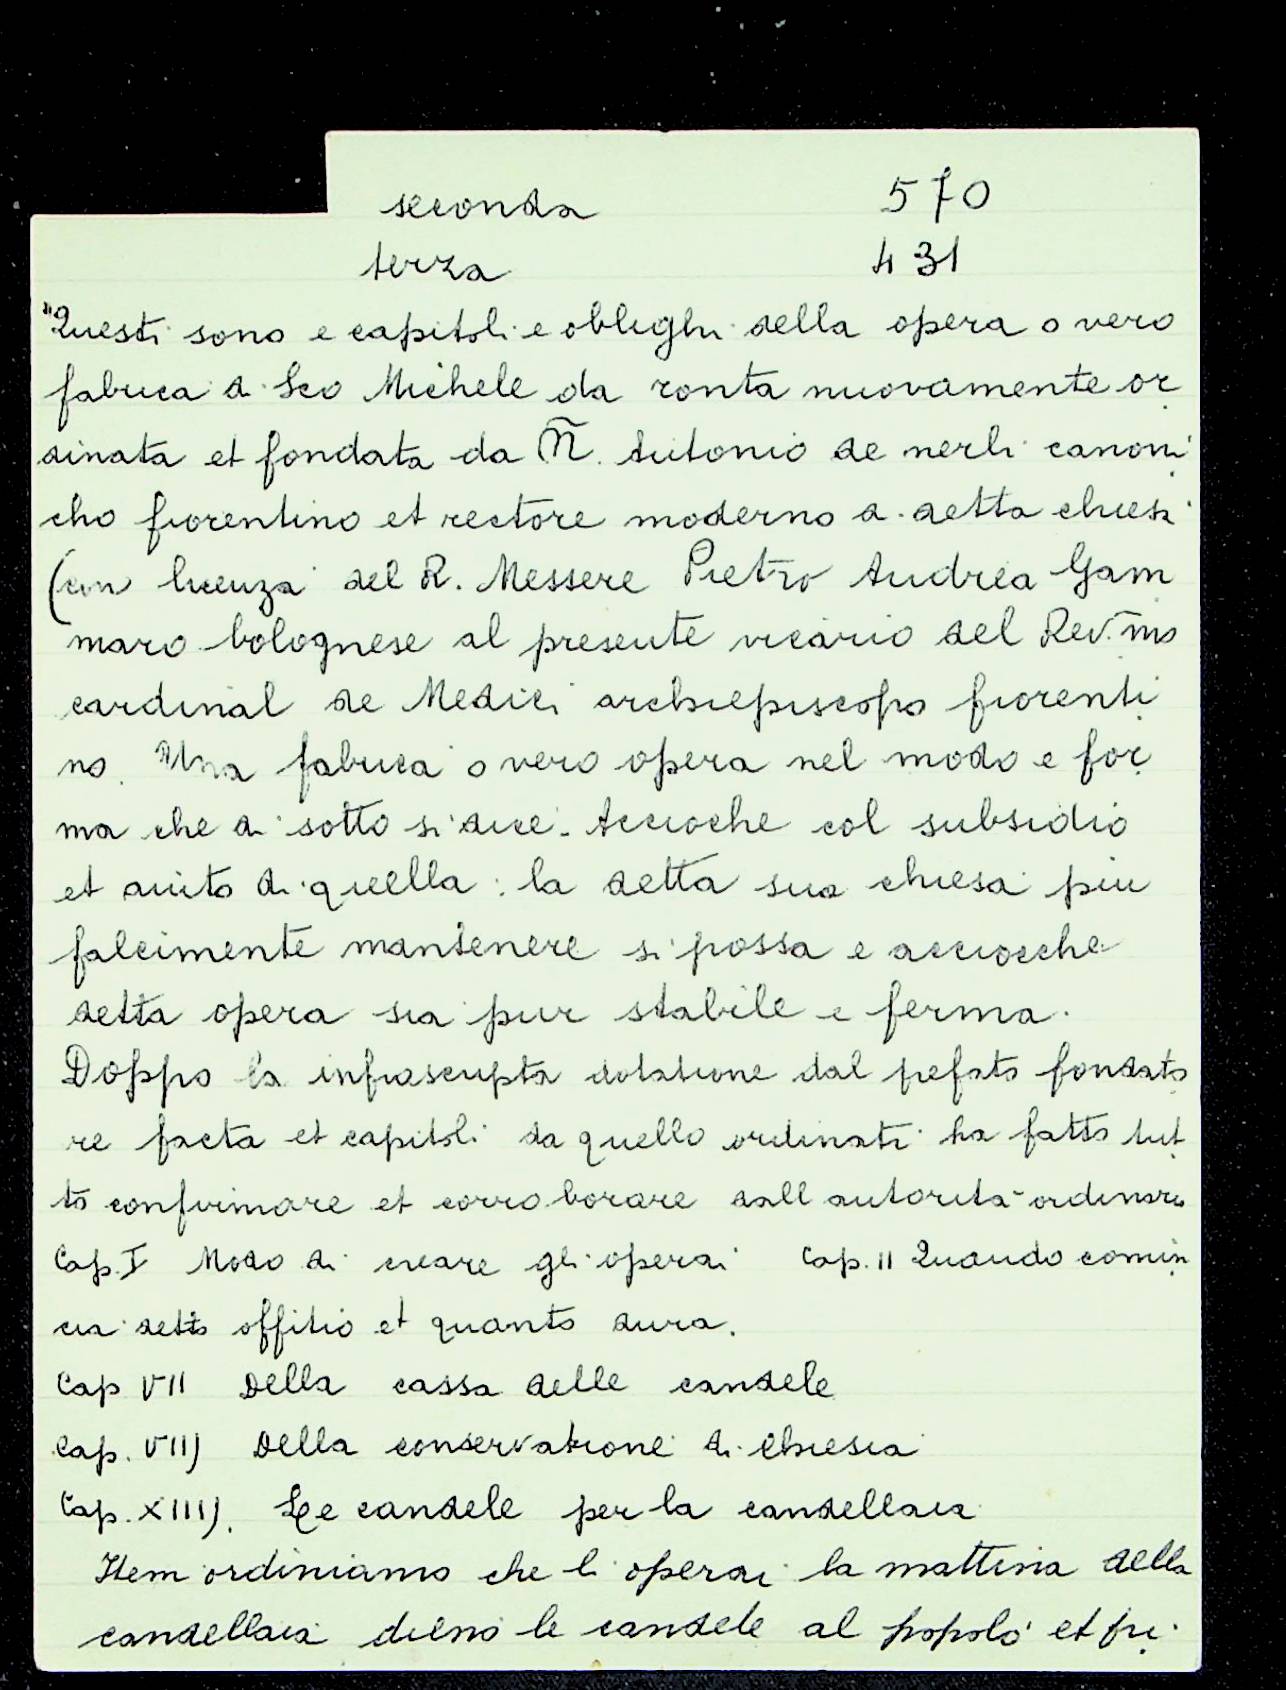 seconda 570
terza 431
"Questi sono e capitoli e oblighi della opera o vero
fabrica di Sco Michele da ronta nuovamente or
dinata et fondata da M̃. Antonio de nerli canoni
cho fiorentino et rectore moderno di detta chiesa
(con licenza del R. Messere Pietro Andrea Gam
maro bolognese al presente vicario del Rev.mo
cardinal de Medici archiepiscopo fiorenti
no. Una fabrica o vero opera nel modo e for
ma che di sotto si dice. Accioche col subsidio
et aiuto di quella: la detta sua chiesa piu
falcimente mantenere si possa e acciocche
detta opera sia pur stabile e ferma.
Doppo la infrascripta dotatione dal pefato fondato
re facta et capitoli da quello ordinati ha fatto tut
to confirmare et corroborare dall autorità ordinaria
Cap. I Modo di creare gli operai Cap. II Quando comin
cia detto offitio et quanto dura.
Cap VII Della cassa delle candele
Cap. VIIJ Della conservatione di chiesia
Cap. XIIIJ. Le candele per la candellaia
Item ordiniamo che li operai la mattina della
candellaia dieno le candele al popolo et pri